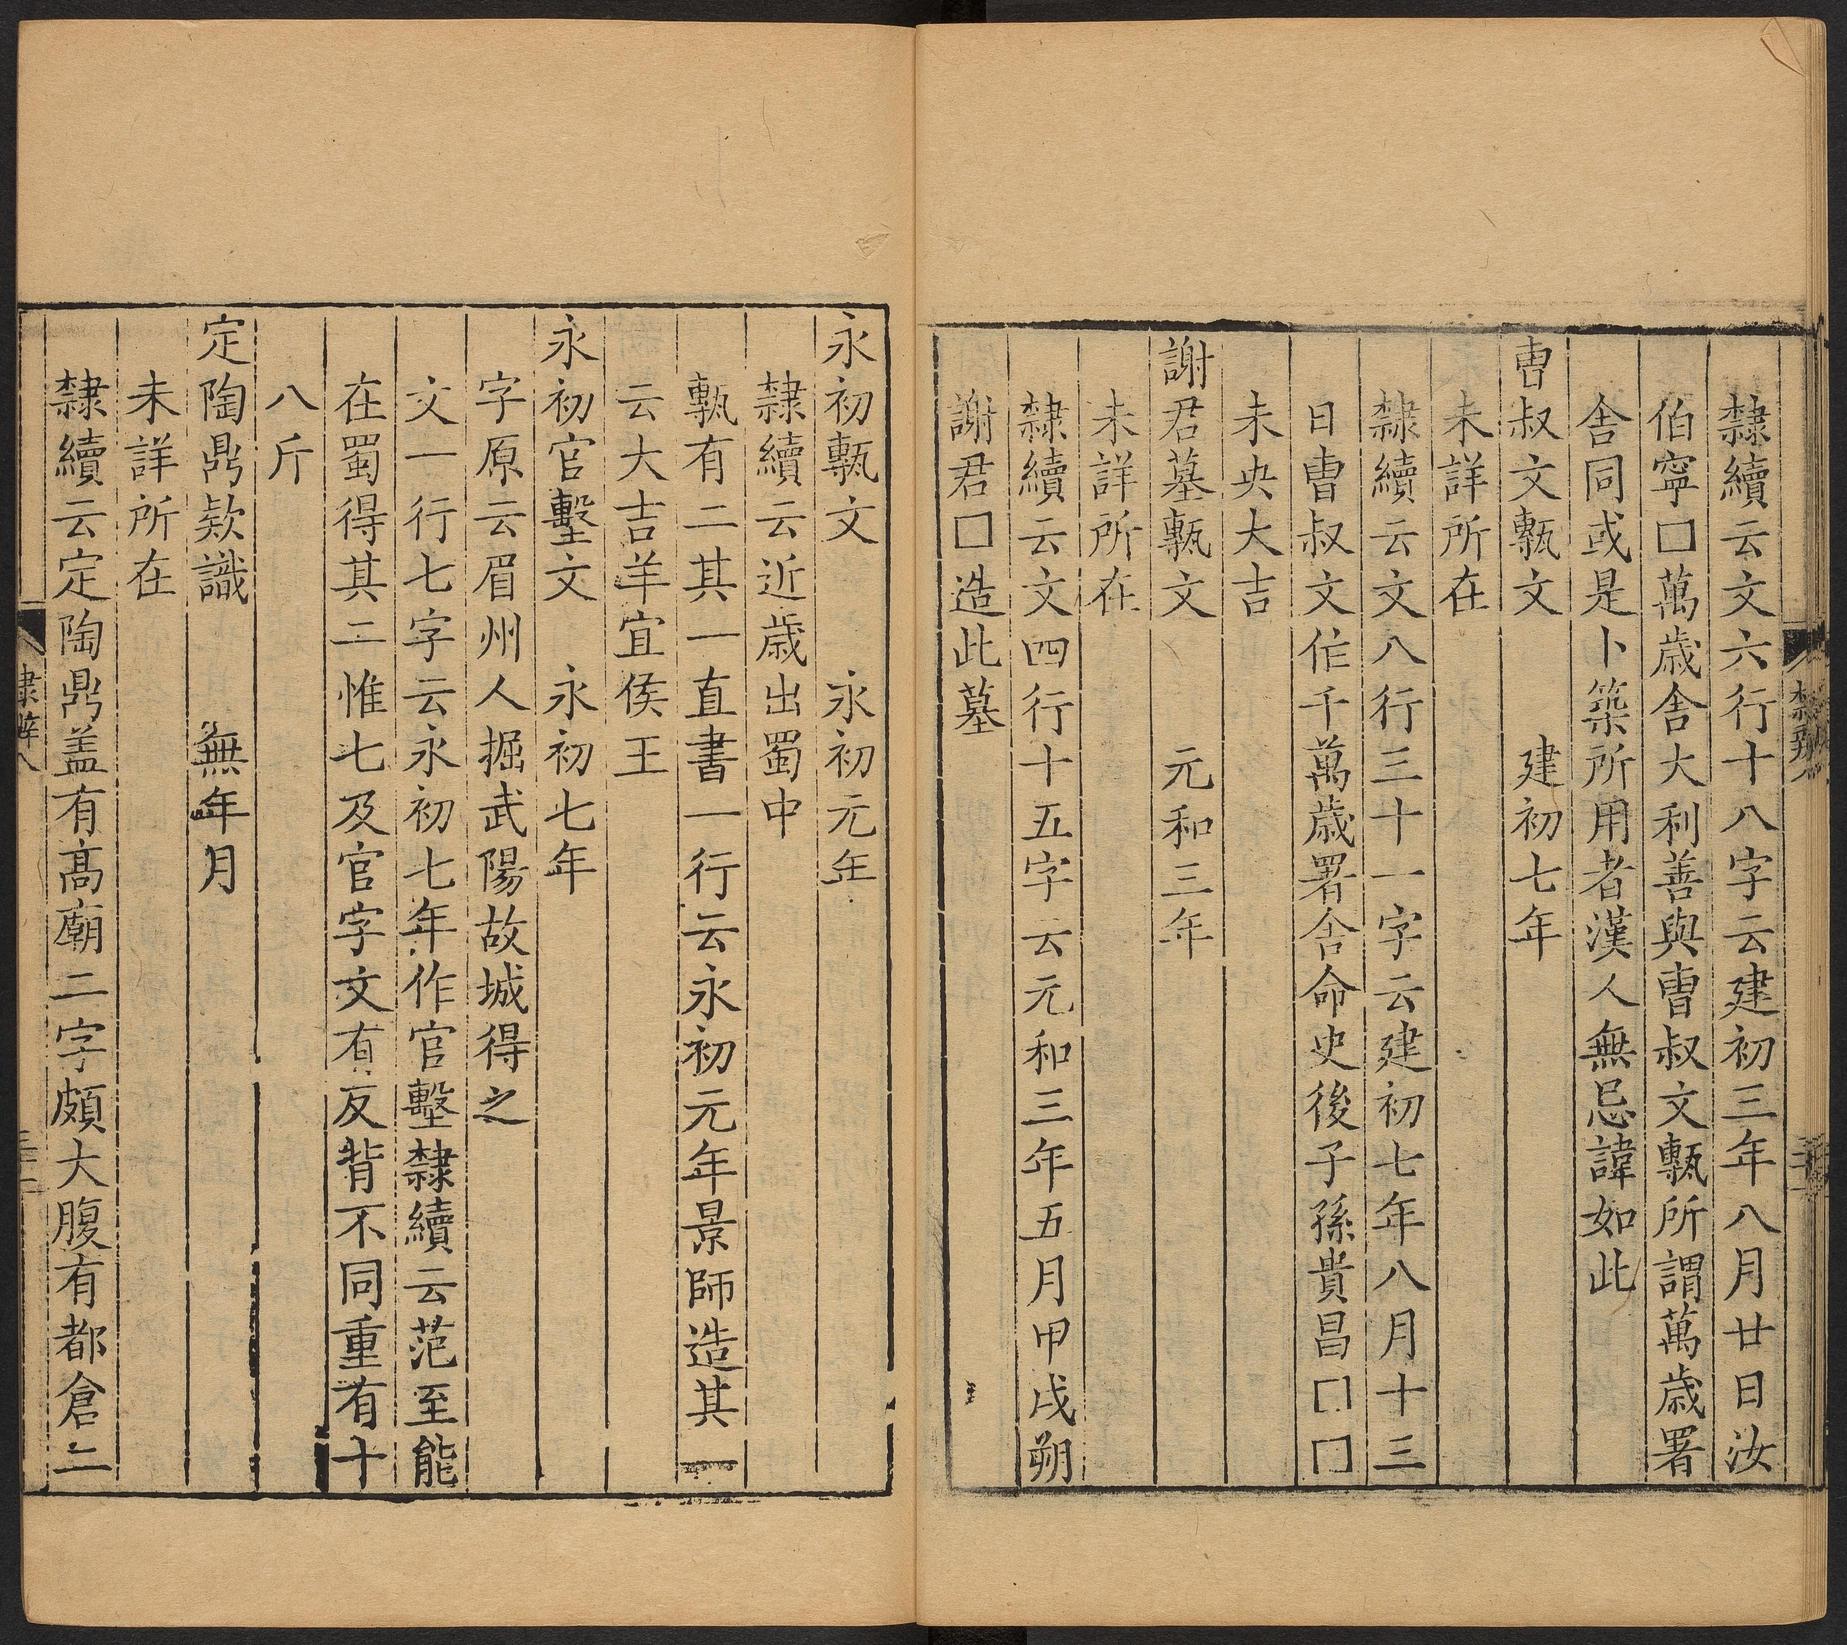 隸續云文六行十八字云建初三年八月廿日汝
伯寧□萬歲舍大利善與曺叔文甎所謂萬歲署
舍同或是卜築所用者漢人無忌諱如此
曺叔文甎文 建初七年
未詳所在
隸續云文八行三十一字云建初七年八月十三
日曺叔文作千萬歲署舍命史後子孫貴昌□□
未央大吉
謝君墓甎文 元和三年
未詳所在
隸續云文四行十五字云元和三年五月甲戌朔
謝君□造此墓
永初甎文 永初元年
隸續云近歲出蜀中
甎有二其一直書一行云永初元年景師造其一
云大吉羊宜侯王
永初官墼文 永初七年
字原云眉州人掘武陽故城得之
文一行七字云永初七年作官墼隸續云范至能
在蜀得其二惟七及官字文有反背不同重有十
八斤
定陶鼎欵識 無年月
未詳所在
隸續云定陶鼎盖有髙廟二字頗大腹有都倉二